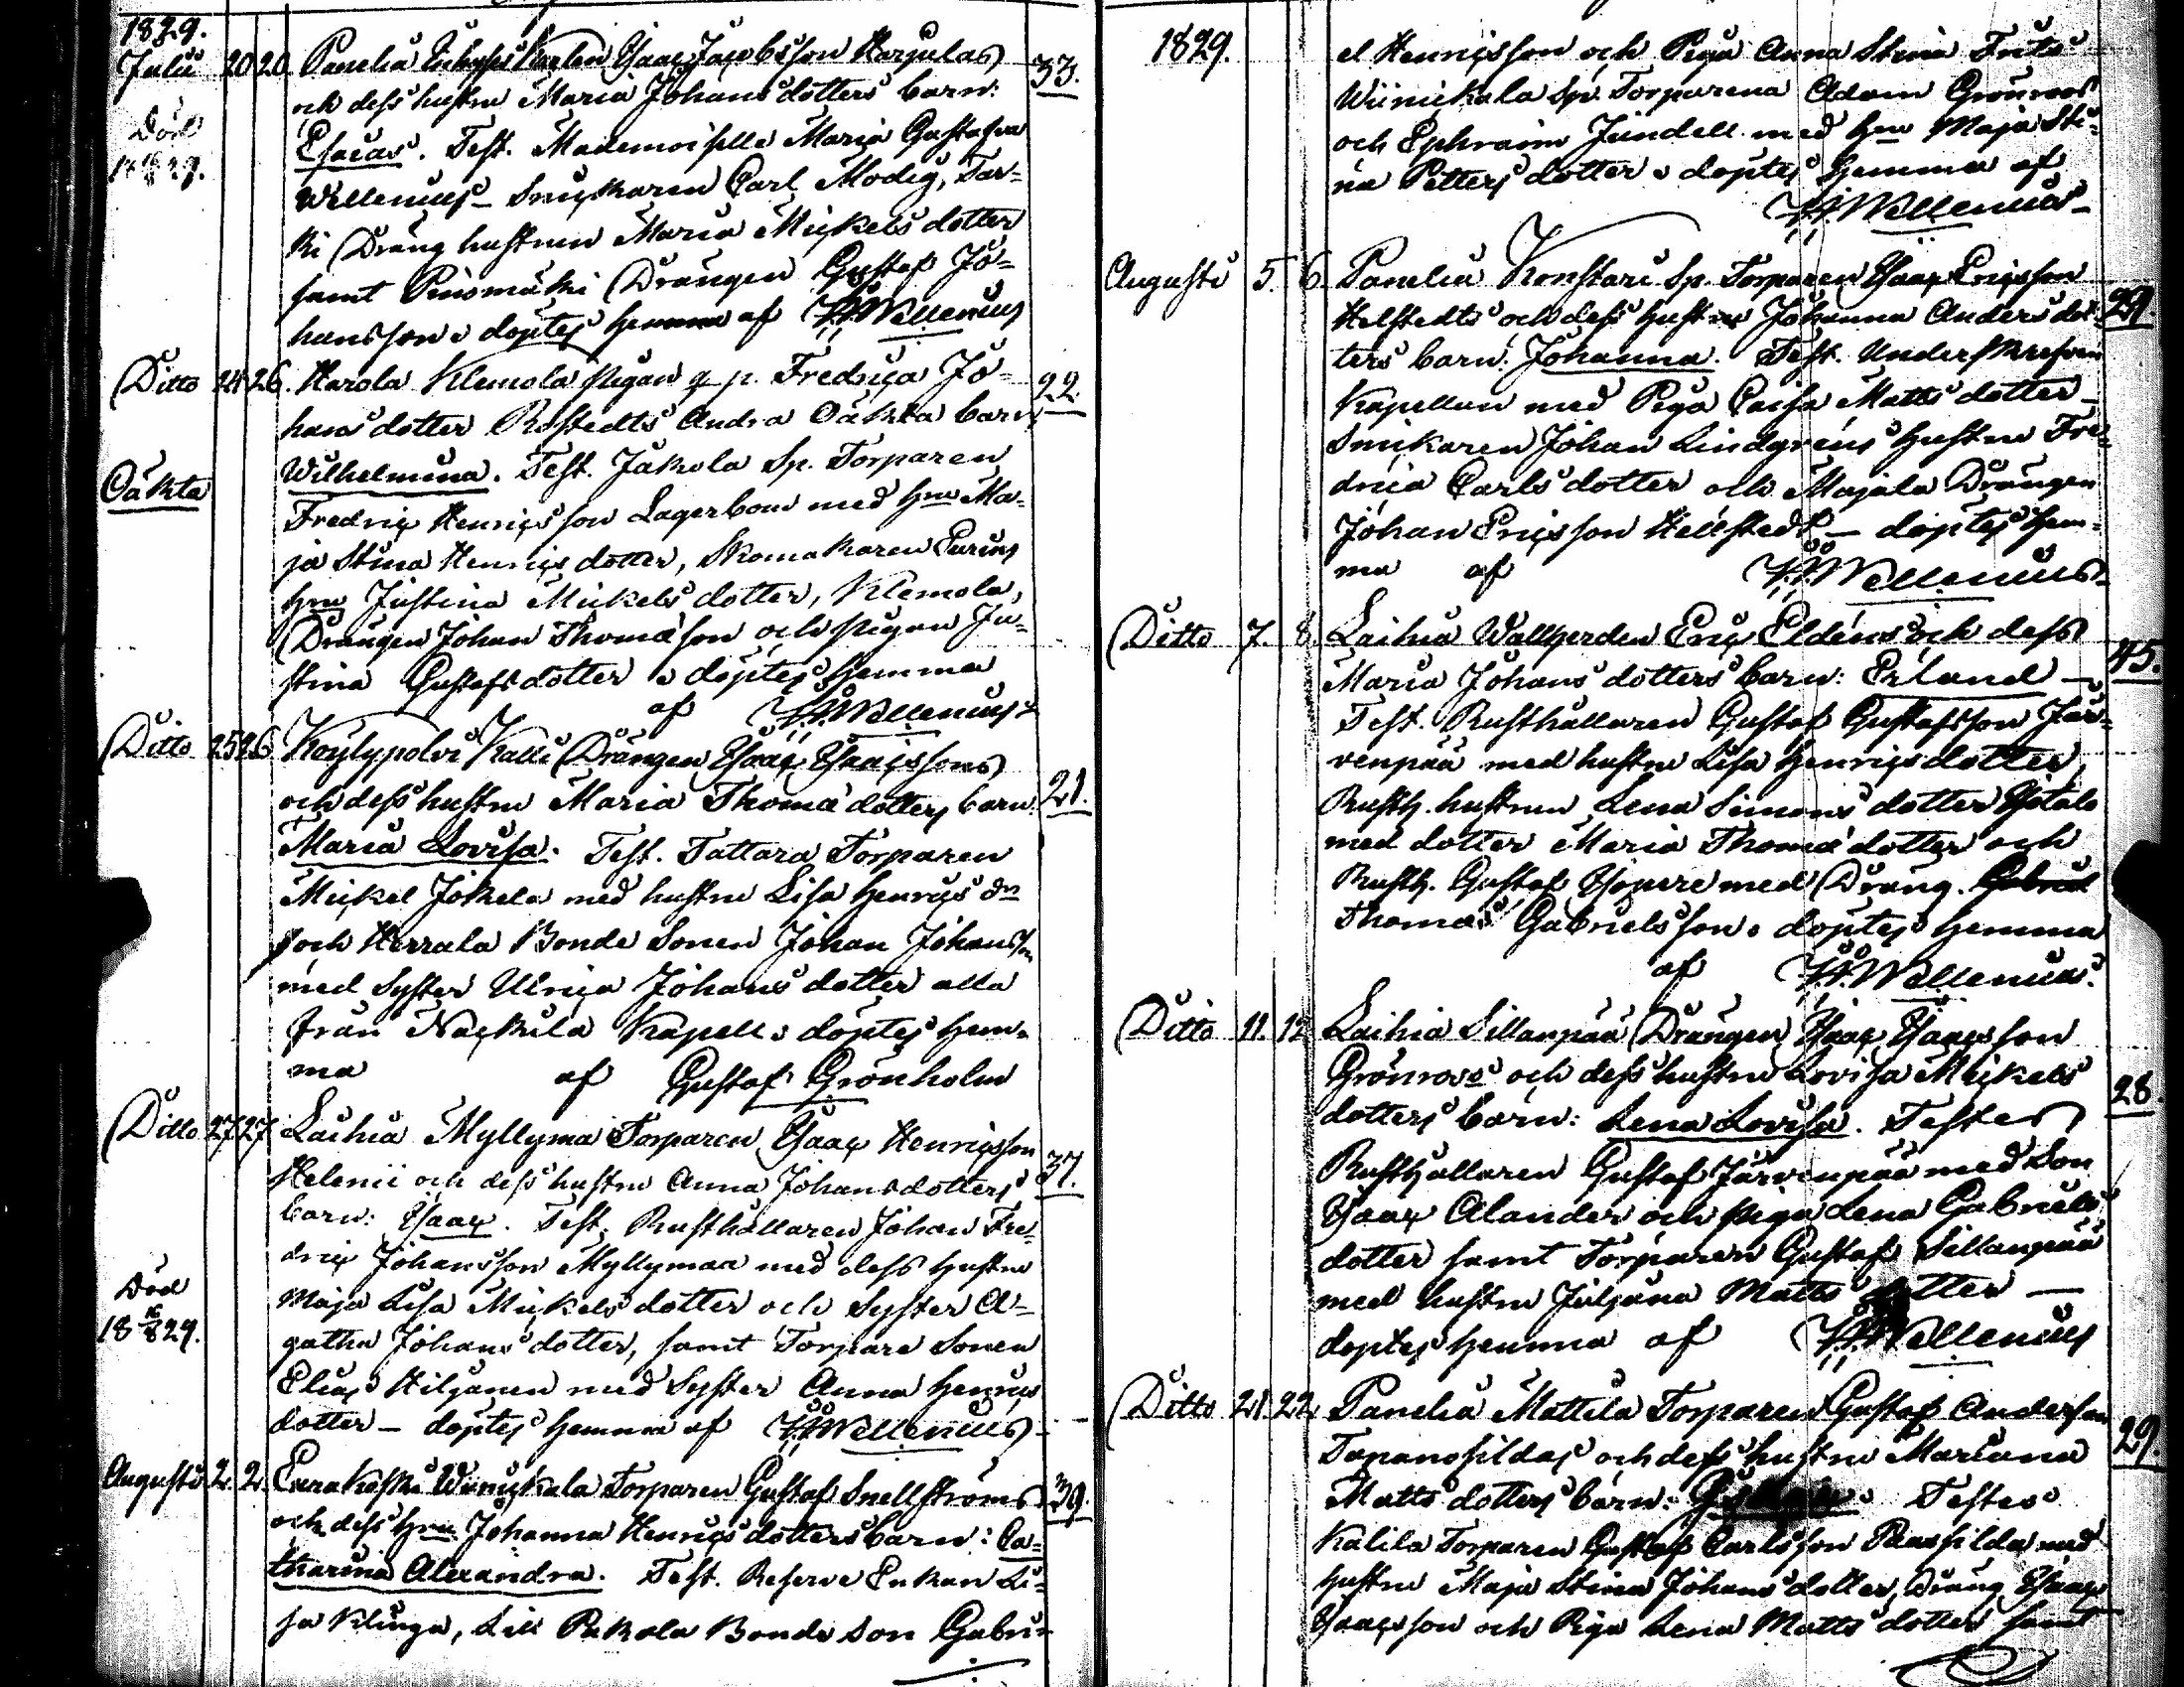 1829.
Julii 20 20 Panelia Inhyses Karlen Isaac Jacobsson Harjulas 33.
och dess hustru Maria Johans dotters barn:
Död
Esaias. Test. Mademoiselle Maria Gustafva
1829.
Wellenius – Snickaren Carl Modig, Tar-
ki Dräng hustrun Maria Mickels dotter
samt Pinomäki Drängen Gustaf Jo-
hansson döptes hemma af Wellenius
Ditto 24 26. Harola Klemola pigan Fredrica Jo- 22
hans dotter Rostedts Andra Oäkta barn
Oäkta
Wilhelmina. Test. Jakola Sp. Torparen
Fredric Henrics son Lagerbom med hru Ma-
ja Stina Henrics dotter, Skomakaren
hru Justina Mickels dotter, Klemola,
Drängen Johan Thomæ son och pigan Ju-
stina Gustafs dotter döptes hemma
af Wellenius
Ditto 25 26 Köylypolvi Kalli Drängen Isaac Isaacssons
och dess hustru Maria Thomæ dotters barn: 21.
Maria Lovisa. Test. Tattara Torparen
Mickel Jokela med hustru Lisa Henrics dr
och Herrala Bonde Sonen Johan Johansson
med Syster Ulrica Johans dotter alla
från Nackila Kapell döptes hem-
ma af Gustaf Grönholm
Ditto 27 27 Laihia Myllymaa Torparen Isaac Henricsson 37.
Helenii och dess hustru Anna Johansdotters
barn: Isaac. Test. Rusthållaren Johan Fre-
dric Johansson Myllymaa med dess hustru
Död
Maja Lisa Mickels dotter och Syster A-
18 16/8 29.
gatha Johans dotter, samt Torpare Sonen
Elias Hiljanen med Syster Anna Henrics
dotter – döptes hemma af Wellenius
Augusti 2. 2. Eurakoski Winickala Torparen Gustaf Snellströms 39.
och dess hru Johanna Henrics dotters barn: Ca-
tharina Alexandra. Test. Reserve Enkan Li-
sa Klinga, Lill Pakola Bonde son Gabri-
1829.
el Henricsson och Piga Anna Stina
Winickala Sp. Torparena Adam Grönroos
och Ephraim Jundell med hru Maja Sti-
na Petters dotter döptes hemma af
Wellenius
Augusti 5. 6. Panelia Konstari Sp. Torparen Isaac Ericsson
Helstedts och dess hustru Johanna Anders dot- 29.
ters barn: Johanna. Test. Underskrefven
Kapellan med Piga Caisa Matts dotter –
Snickaren Johan Lindgrens hustru Fre-
drica Carls dotter och Majala Drängen
Johan Ericsson Hellstedt – döptes hem-
ma af Wellenius
Ditto 7. 8. Laihia Wallherden Eric Eldens och dess
Maria Johans dotters barn: Erland – 45.
Test. Rusthållaren Gustaf Gustafsson Jär-
venpää med hustru Lisa Henrics dotter,
Rusth. hustrun Lena Simons dotter Isotalo
med dotter Maria Thomæ dotter och
Rusth. Gustaf Isopere med Dräng. Gabriel
Thomas Gabrielsson döptes hemma
af Wellenius.
Ditto 11. 12 Laihia Sillanpää Drängen Isaac Isaacsson
Grönroos och dess hustru Lovisa Mickels 28.
dotters barn: Lena Lovisa. Testes
Rusthållaren Gustaf Järvenpää med Son
Isaac Alander och piga Lena Gabriels
dotter samt Torparen Gustaf Sillanpää
med hustru Juljana Matts dotter –
döptes hemma af Wellenius
Ditto 21. 22. Panelia Mattila Torparen Gustaf Andersson
Tapanosildas och dess hustru Mariana 29.
Matts dotters barn: Testes
Kalila Torparen Gustaf Carlsson Paasilda med
hustru Maja Stina Johans dotter, Dräng Isaac
Isaacsson och Piga Lena Matts dotter samt